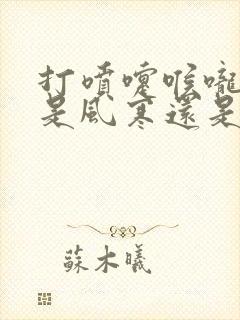 打噴嚏喉嚨
是風寒還是
蘇木曦